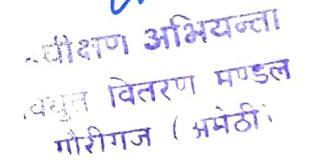 अधीक्षण अभियन्ता
विद्युत वितरण मण्डल
गौरीगज ( अमेठी )